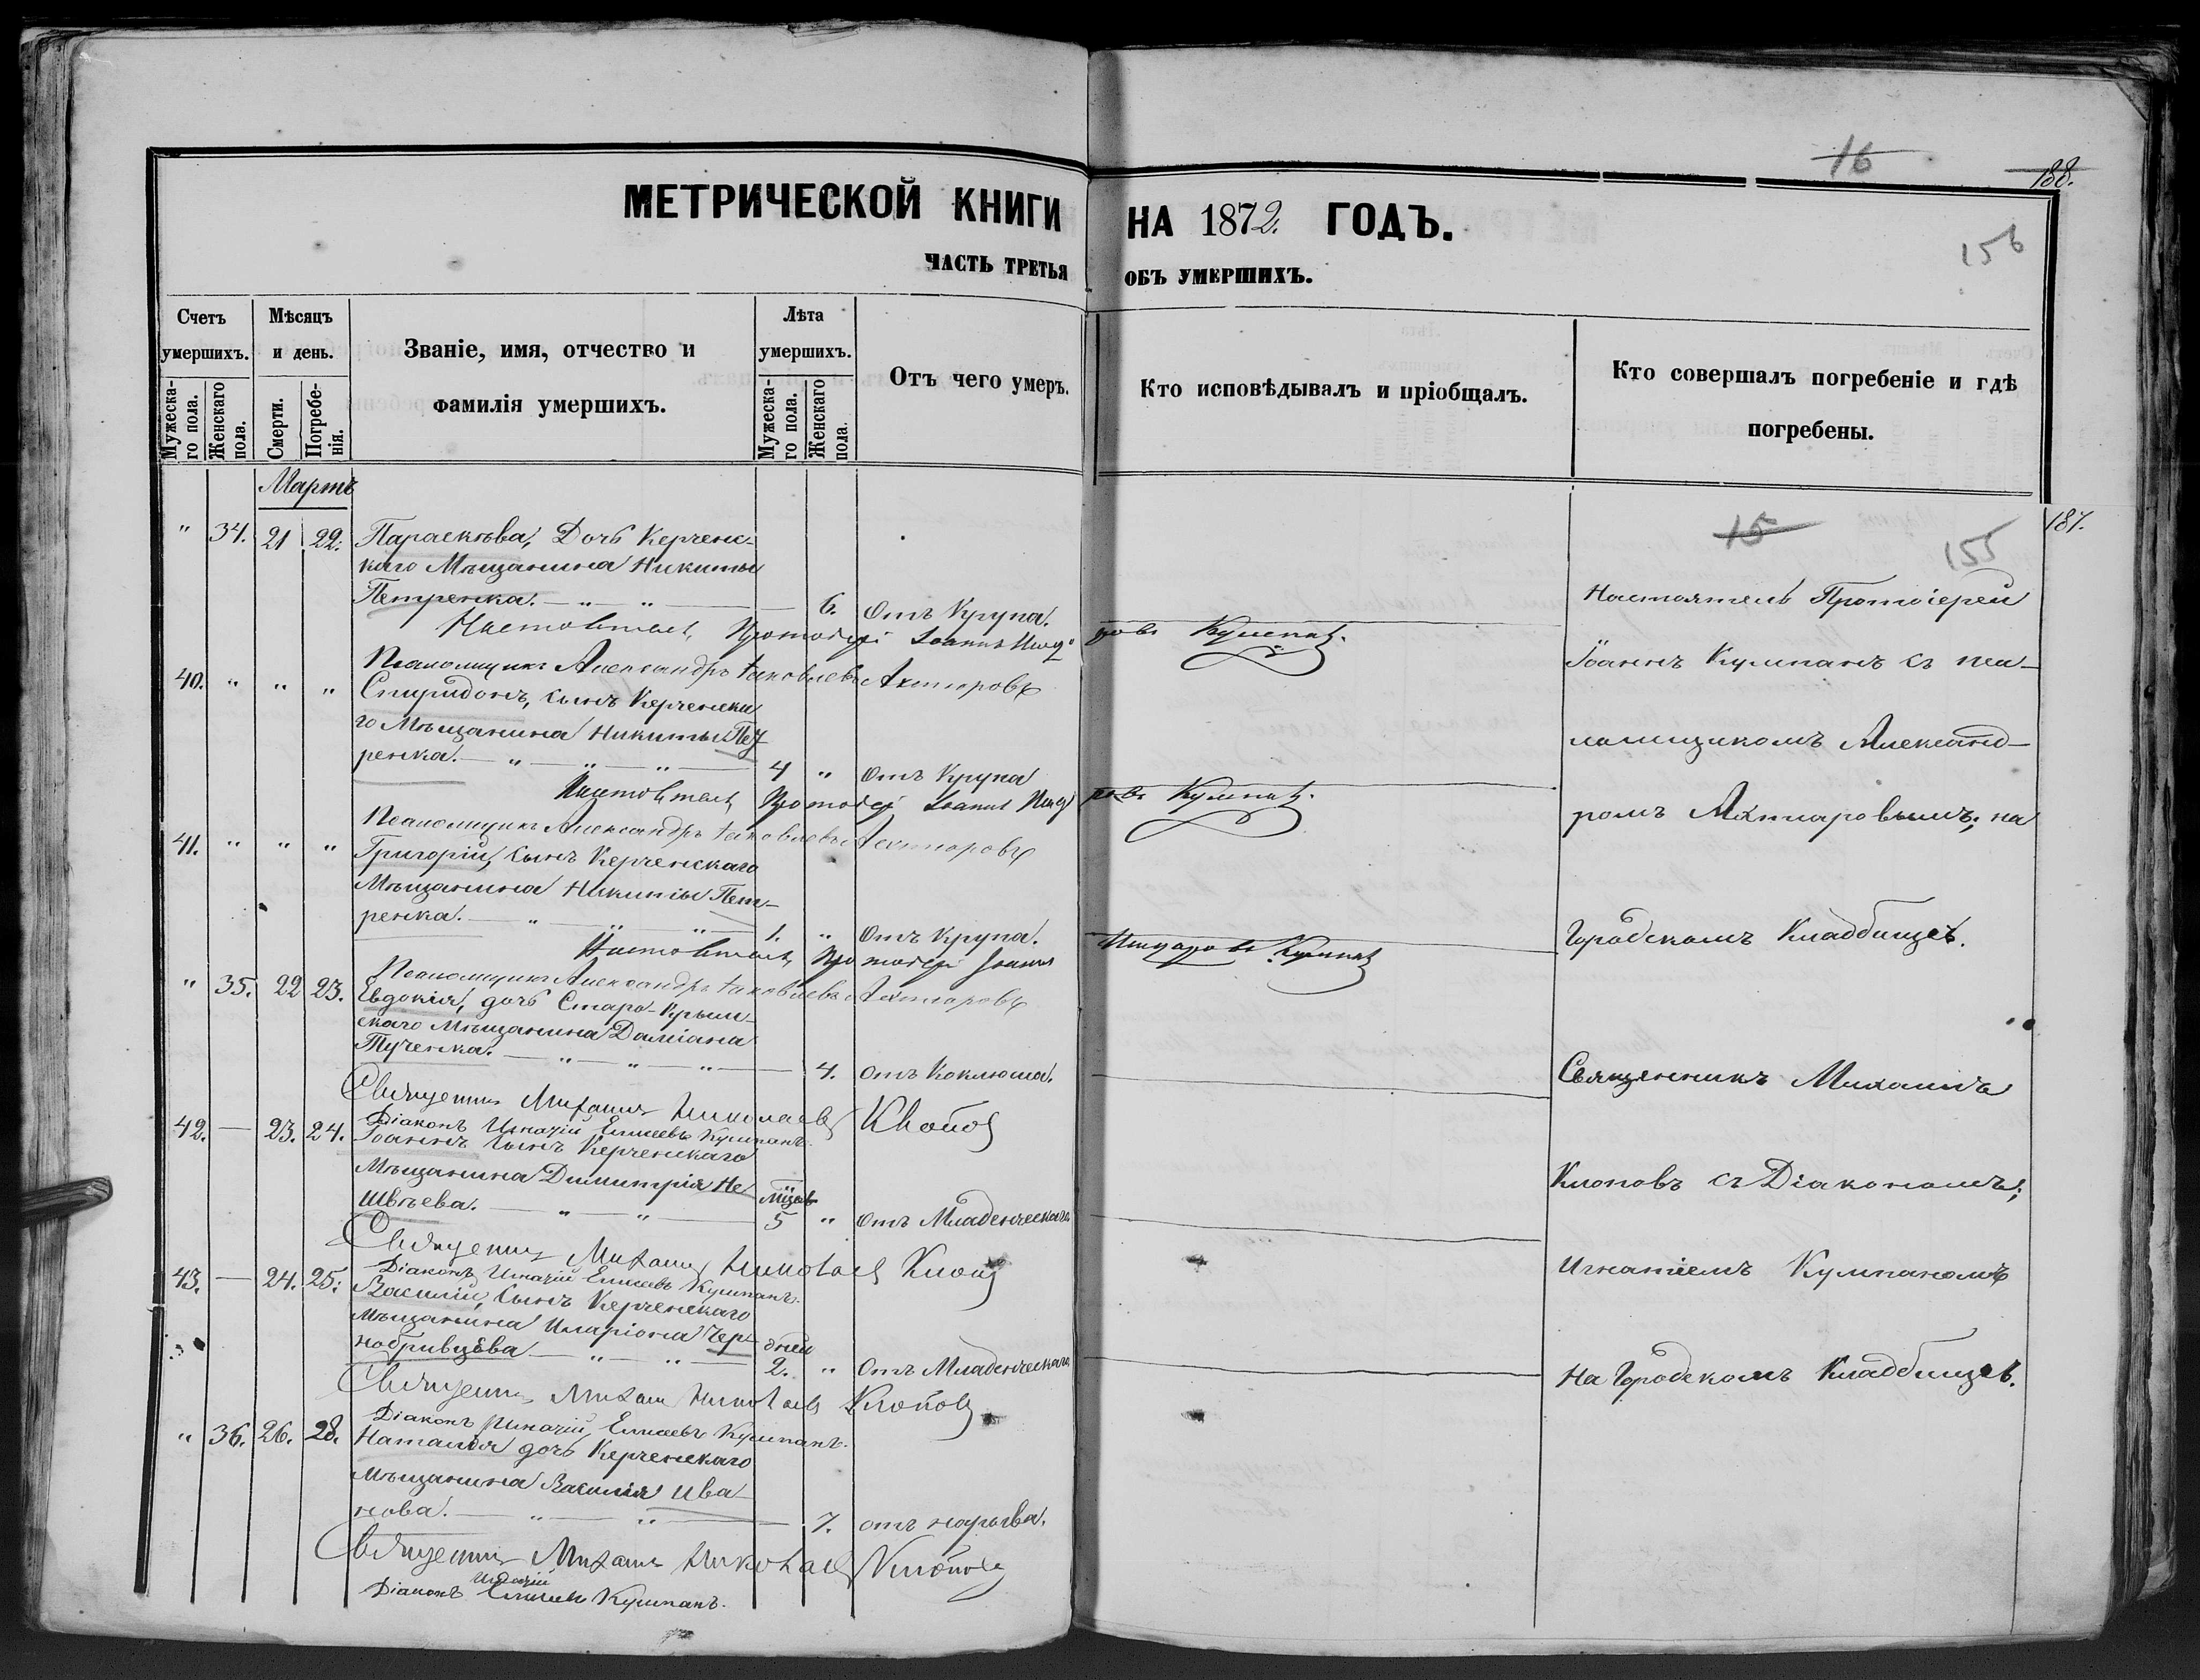 16
188.
МЕТРИЧЕСКОЙ КНИГИ НА 1872. ГОДЪ.
156
ЧАСТЬ ТРЕТЬЯ ОБЪ УМЕРШИХЪ.
Счетъ умершихъ.
Мѣсяцъ и день.
Званіе, имя, отчество и фамилія умершихъ.
Лѣта умершихъ.
Отъ чего умеръ.
Кто исповѣдывалъ и пріобщалъ.
Кто совершалъ погребеніе и гдѣ погребены.
Мужескаго пола.
Женскаго пола.
Смерти.
Погребенія.
Мужескаго пола.
Женскаго пола.
Мартъ
187.
15
155
" 34. 21 22. Параскѣва, Дочь Керченс-
каго Мѣщанина Никиты
Петренка. — " — " — 6. Отъ Крупа.
Настоятель Протоіерей Іоаннъ
Кумпанъ.
Псаломщикъ Александръ Яковлевъ Ахтыровъ
40. " " " Спиридонъ, сынъ Керченска
го Мѣщанина Никиты Пет
ренка. — " — " — " — 4 " Отъ Крупа
Настоятель Протоіерей Іоаннъ
Кумпанъ.
Псаломщикъ Александръ Яковлевъ Ахтыровъ
41. " " " Григорій, сынъ Керченскаго
Мѣщанина Никиты Пет-
ренка. — " — " — " 1. " Отъ Крупа.
Настоятель Протоіерей Іоаннъ
Кумпанъ
Псаломщикъ Александръ Яковлевъ Ахтыровъ
" 35. 22 23. Евдокія, дочь Старо-Крым-
скаго Мѣщанина Даміана
Тученка. — " — " — " — 4. Отъ Коклюша.
Священникъ Михаилъ Николаевъ Клоповъ
Діаконъ Игнатій Елисеевъ Кумпанъ.
42. — 23. 24. Іоаннъ сынъ Керченскаго
Мѣщанина Димитрія Не
швѣева. — " — " — мѣсяц. 5 " Отъ Младенческаго
Священникъ Михаилъ Николаевъ Клоповъ
Діаконъ Игнатій Елисеевъ Кумпанъ.
43. — 24. 25. Василій, сынъ Керченскаго
Мѣщанина Иларіона Чер-
нобривцева — " — " — дней 2. " Отъ Младенческаго
Священникъ Михаилъ Николаевъ Клоповъ
Діаконъ Игнатій Елисеевъ Кумпанъ.
" 36. 26. 28. Наталія дочь Керченскаго
Мѣщанина Василія Ива-
нова. — " — " — 7. отъ нарыва.
Священникъ Михаилъ Николаевъ Клоповъ
Діаконъ Игнатій Елисеевъ Кумпанъ.
Настоятель Протоіерей
Іоаннъ Кумпанъ съ пса-
ломщикомъ Александ-
ромъ Ахтыровымъ; на
Городскомъ Кладбищѣ.
Священникъ Михаилъ
Клоповъ съ Діакономъ;
Игнатіемъ Кумпаномъ
На Городскомъ Кладбищѣ.